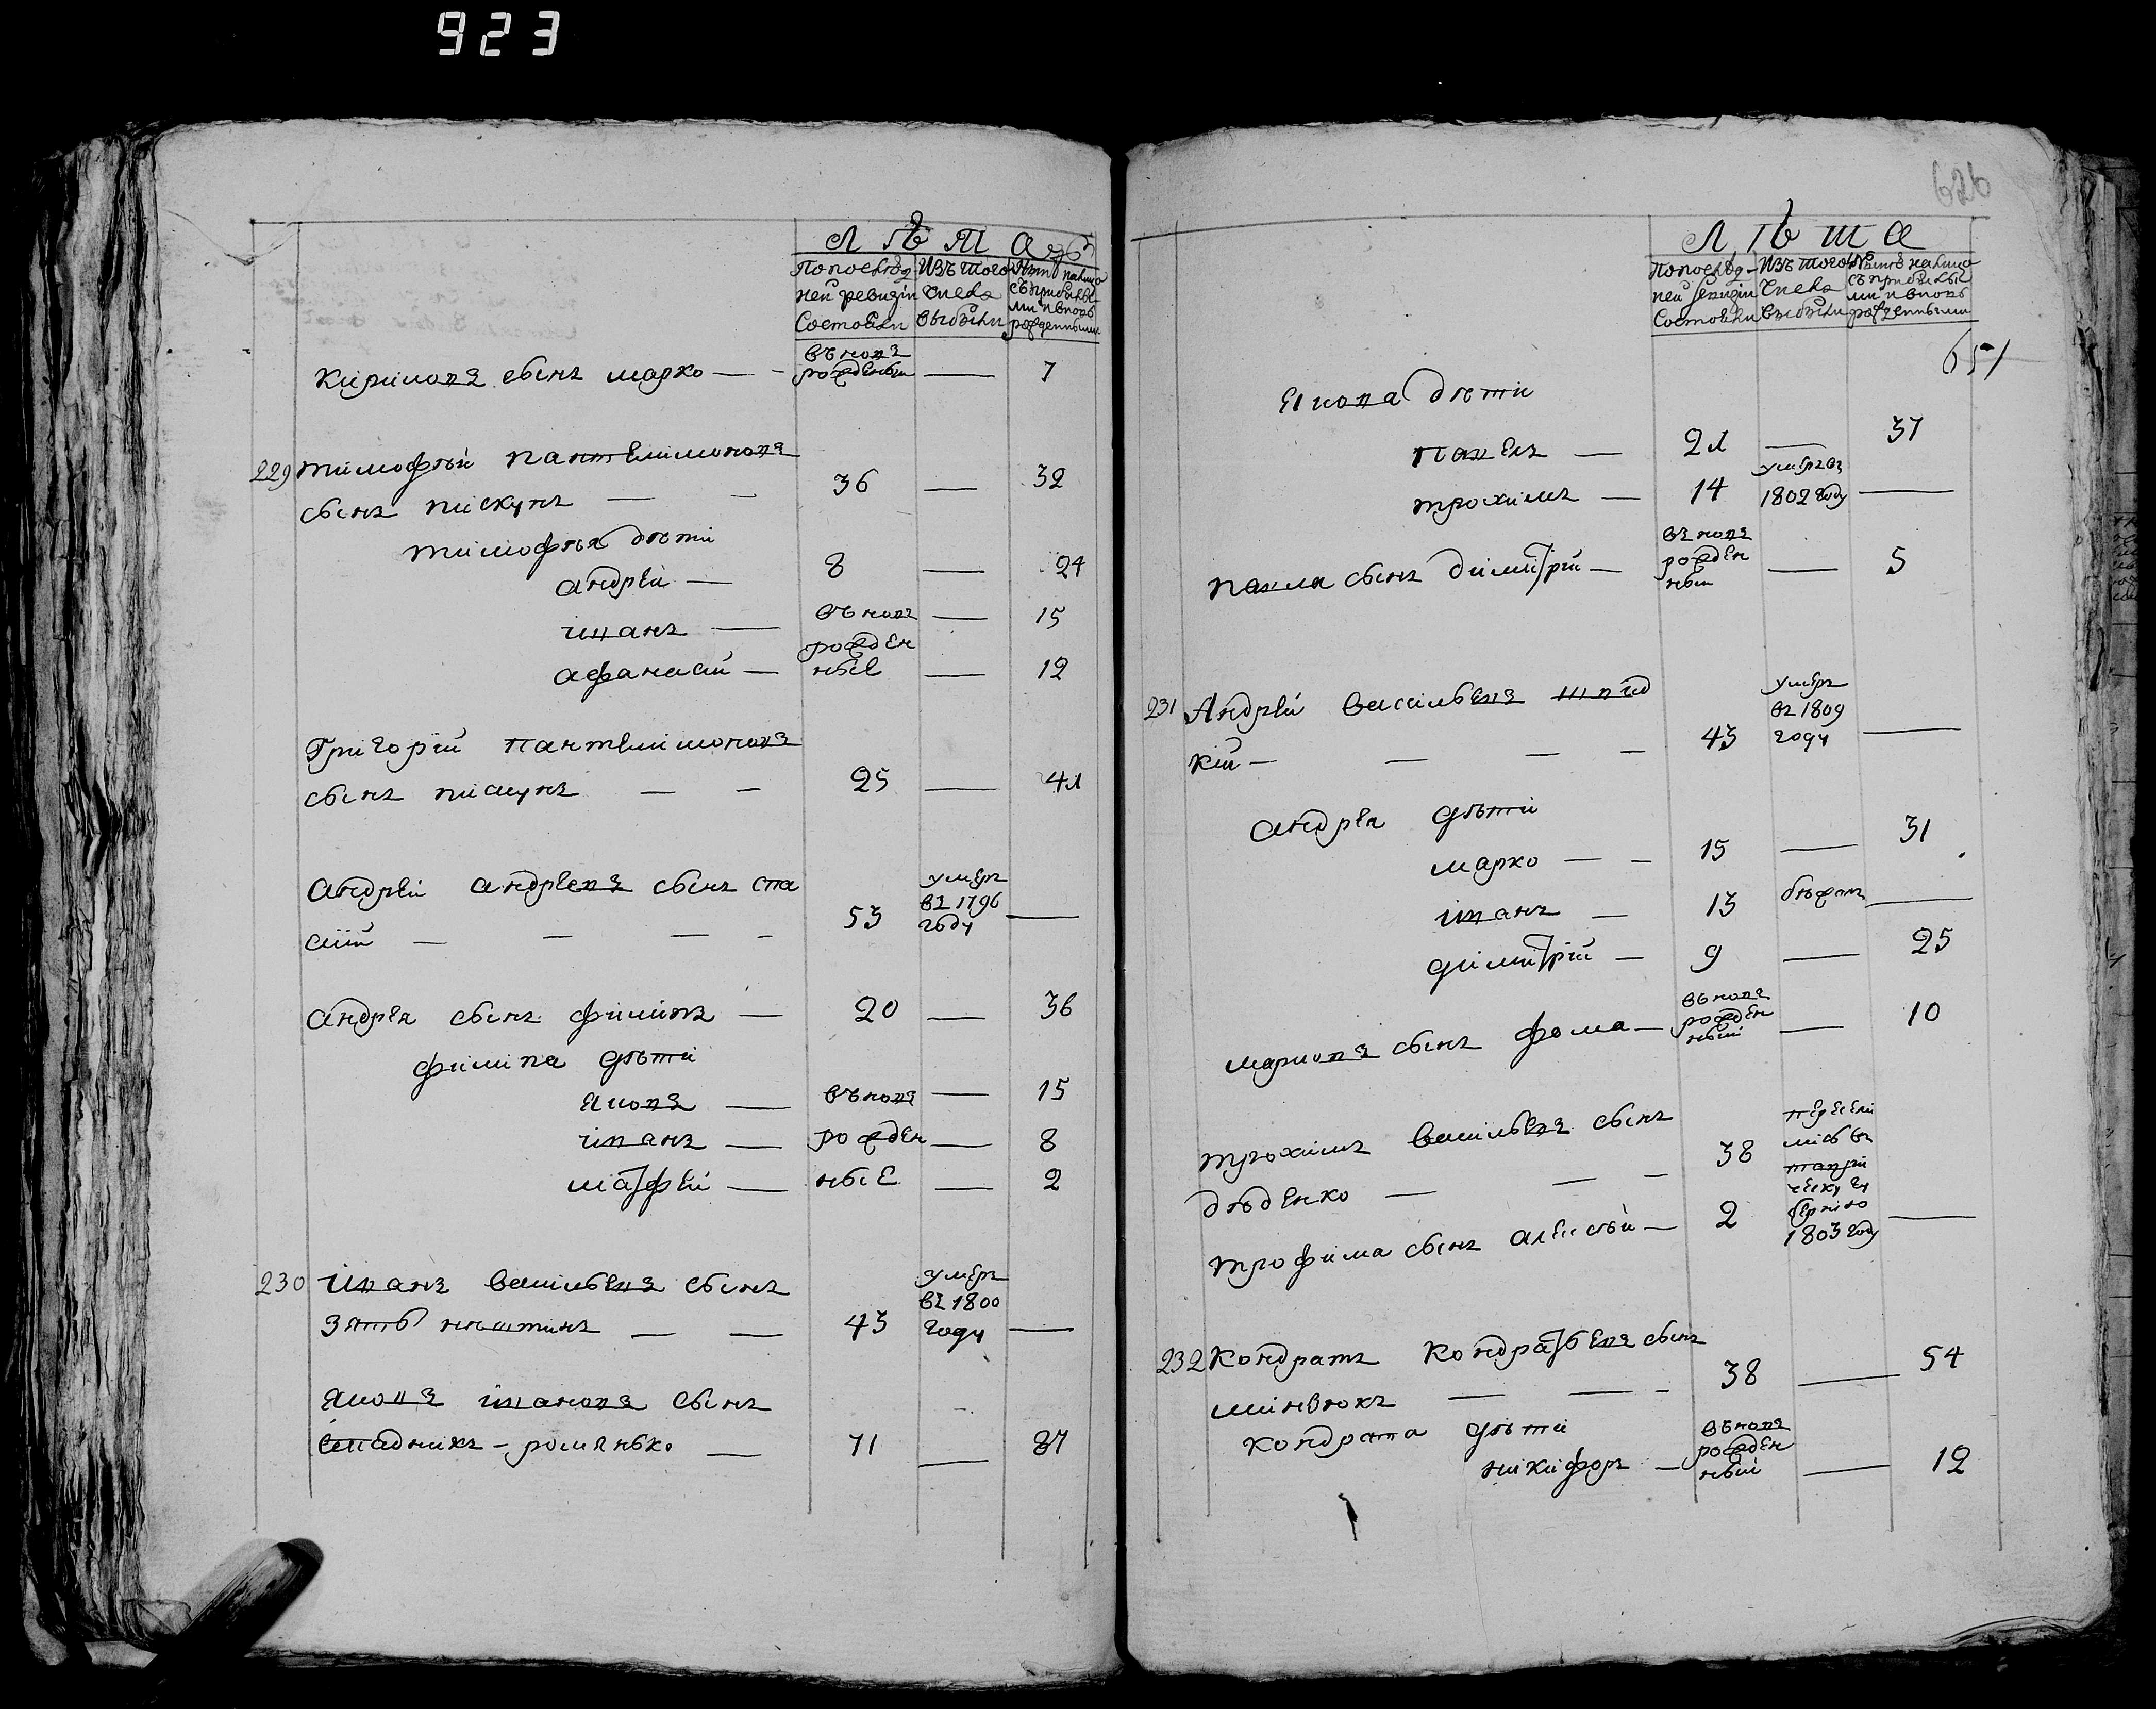 923
Лѣта
Попослѣд ней ревизіи Состояли
Изъ того Числа выбыли
Нынѣ налицо съ прибылы ми и вновь рожденными
Кирилова сынъ марко — вьновъ рожденный — 7
229 тимофѣй пантелимоновъ
сынъ пискунъ — 36 — 32
тимофѣя дѣти
андрей — 8 — 24
иванъ — вьновъ — 15
рожден
афанасій — ные — 12
Григорій пантелимоновъ
сынъ пискунъ — 25 — 41
андрей андреевъ сынъ спа
сій — 53 умеръ въ 1796 году —
андрея сынъ филипъ — 20 — 36
филипа дѣти
яковъ — вьновъ — 15
иванъ — рожден — 8
матфей — ные — 2
230 иванъ васильевъ сынъ
зять — 43 умеръ въ 1800 году —
яковъ ивановъ сынъ
роменько — 71 — 87
626
Лѣта
Попослѣд ней ревизіи Состояли
Изъ того Числа выбыли
Нынѣ налицо съ прибылы ми и вновь рожденными
651
якова дѣти
павелъ — 21 — 37
трохимъ — 14 умеръ въ 1802 году —
павла сынъ димитрій — въновъ рожден ный — 5
231 Андрей васильевъ
кій — 43 умеръ въ 1809 году —
андрея дѣти
марко — 15 — 31
иванъ — 13 бѣжатъ —
димитрій — 9 — 25
марковъ сынъ фома — вьновъ рожден ный — 10
трохимъ васильевъ сынъ
дѣденко — 38 пересели лись въ 
трофима сынъ алексѣй — 2 1803 году —
232 Кондратъ Кондратьевъ сынъ
38 — 54
кондрата дѣти
никифоръ — вьновъ рожден ный — 12